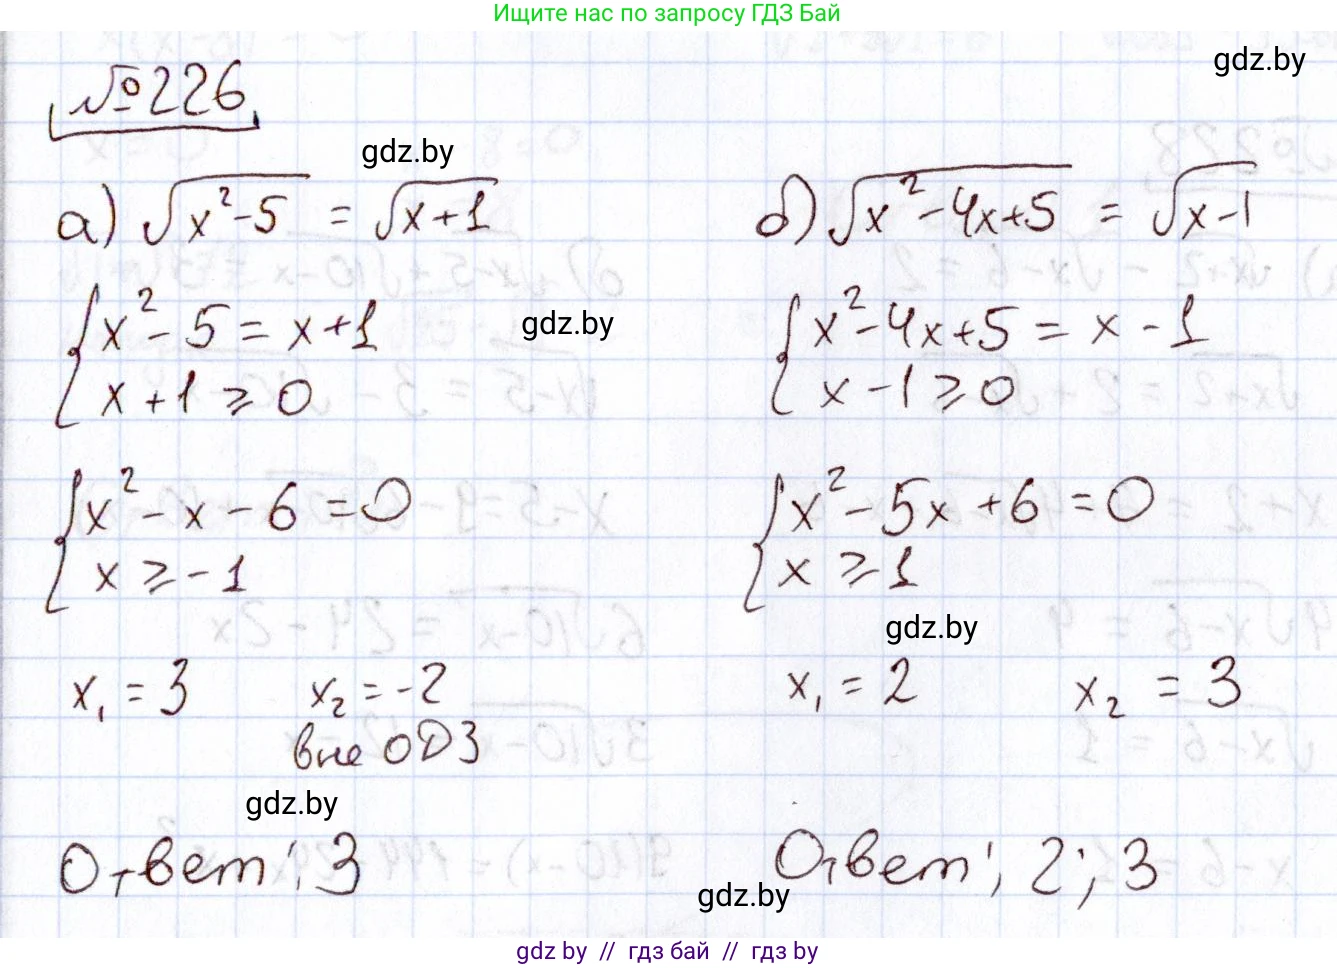 Ищите нас по запросу ГДЗ Бай
gdz.by
№226
gdz.by
а) √(x²-5) = √(x+1)
{ x²-5 = x+1
x+1 ≥ 0
gdz.by
{ x² - x - 6 = 0
x ≥ -1
x₁ = 3 x₂ = -2
вне ОДЗ
gdz.by
Ответ: 3
б) √(x²-4x+5) = √(x-1)
{ x²-4x+5 = x-1
x-1 ≥ 0
{ x²-5x+6 = 0
x ≥ 1
gdz.by
x₁ = 2 x₂ = 3
Ответ: 2; 3
gdz.by
gdz by // гдз бай // гдз by